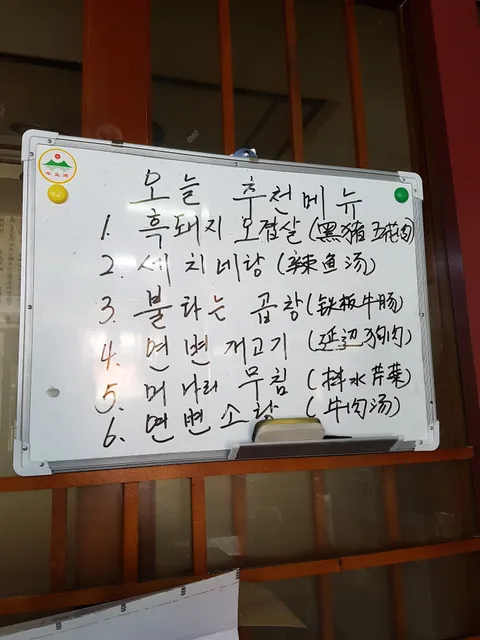 오늘 추천메뉴
1. 흑돼지 오겹살 (黑猪五花肉)
2. 세치네탕 (辣鱼汤)
3. 불타는 곱창 (铁板牛肠)
4. 연변개고기 (延边狗肉)
5. 머나리 무침 (拌水芹菜)
6. 연변소탕 (牛肉汤)